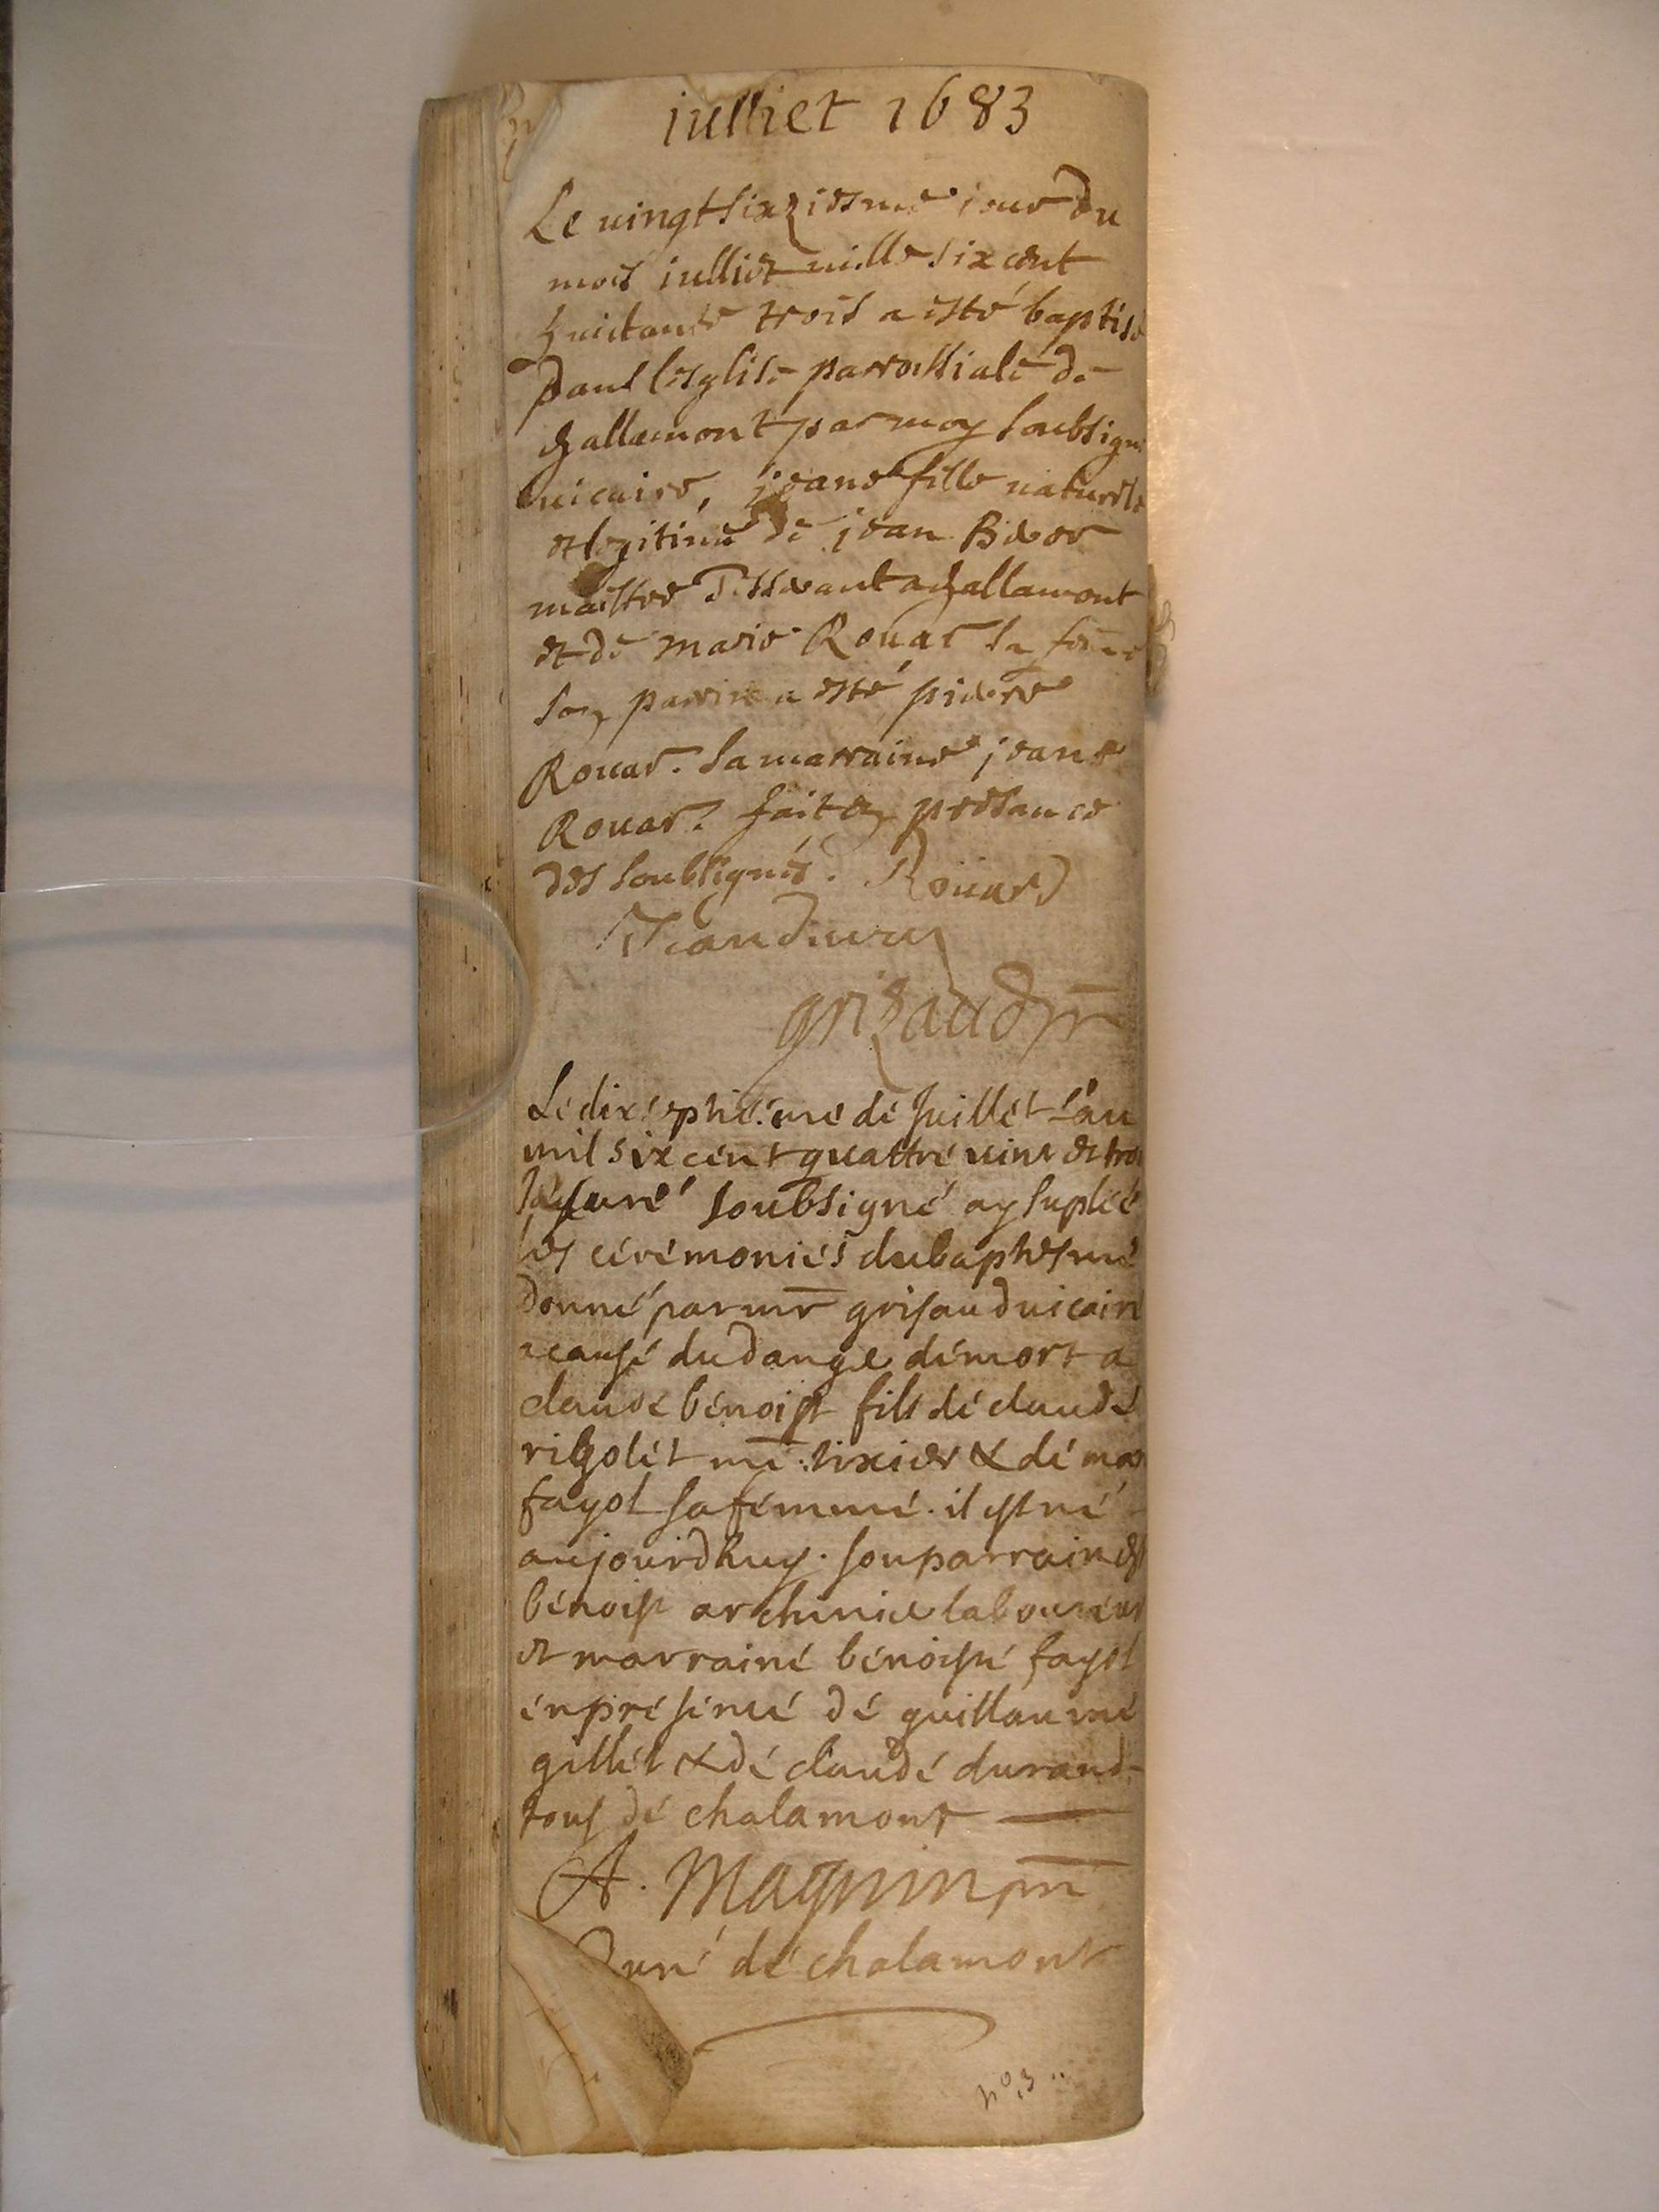 julliet 1683
Le vingt sixziesme jour du
mois julliet mille six cent
huictante trois a esté baptisé
Dans lesglise parrochiale de
challamont par moy soubsigné
vicaire, jeane fille naturelle
et legitime de jean
maistre Tisserant a challamont
et de marie Rouar sa feme
son parrin a esté pierre
Rouar. sa marraine jeane
Rouar. fait en presance
des soubsignés. Roüard
grizaud ptr
Le dixseptiéme de Juillet l'an
mil six cent quattre vint et trois
Je curé soubsigné ay suplée
les cérémonies du baptesme
donné par mr grisaud vicaire
a cause du dange de mort a
claude benoist fils de claude
rigolet me tixier & de mar
fayol sa femme. il est né
aujourdhuy. son parrain est
benoist archinie laboureur
et marraine benoiste fayol
en presence de guillaume
gillet & de claude durand
tous de chalamont
A. Magnin ptr
Curé de chalamont